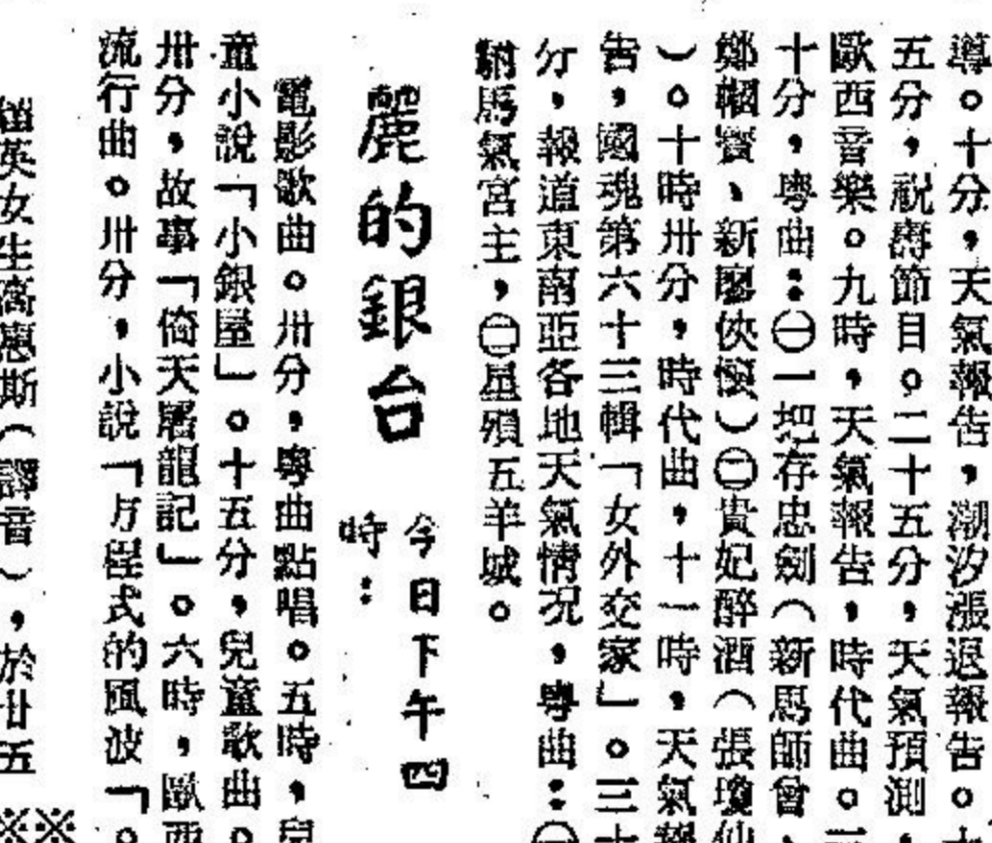 導。十分，天氣報告，潮汐漲退報告。十
五分，祝壽節目。二十五分，天氣預測，
歐西音樂。九時，天氣報告，時代曲。
十分，粵曲：㊀一把存忠劍（新馬師曾、
鄭幗寶、新廖俠懷）㊁貴妃醉酒（張瓊仙
）。十時卅分，時代曲，十一時，天氣報
告，國魂第六十三輯「女外交家」。三十
分，報道東南亞各地天氣情况，粵曲：㊀
駙馬氣宮主，㊁星殞五羊城。
麗的銀台 今日下午四
時：
電影歌曲。卅分，粵曲點唱。五時，兒
童小說「小銀屋」。十五分，兒童歌曲。
卅分，故事「倚天屠龍記」。六時，歐西
流行曲。卅分，小說「方程式的風波「。
英女生高惠斯（譯音），於廿五
※※